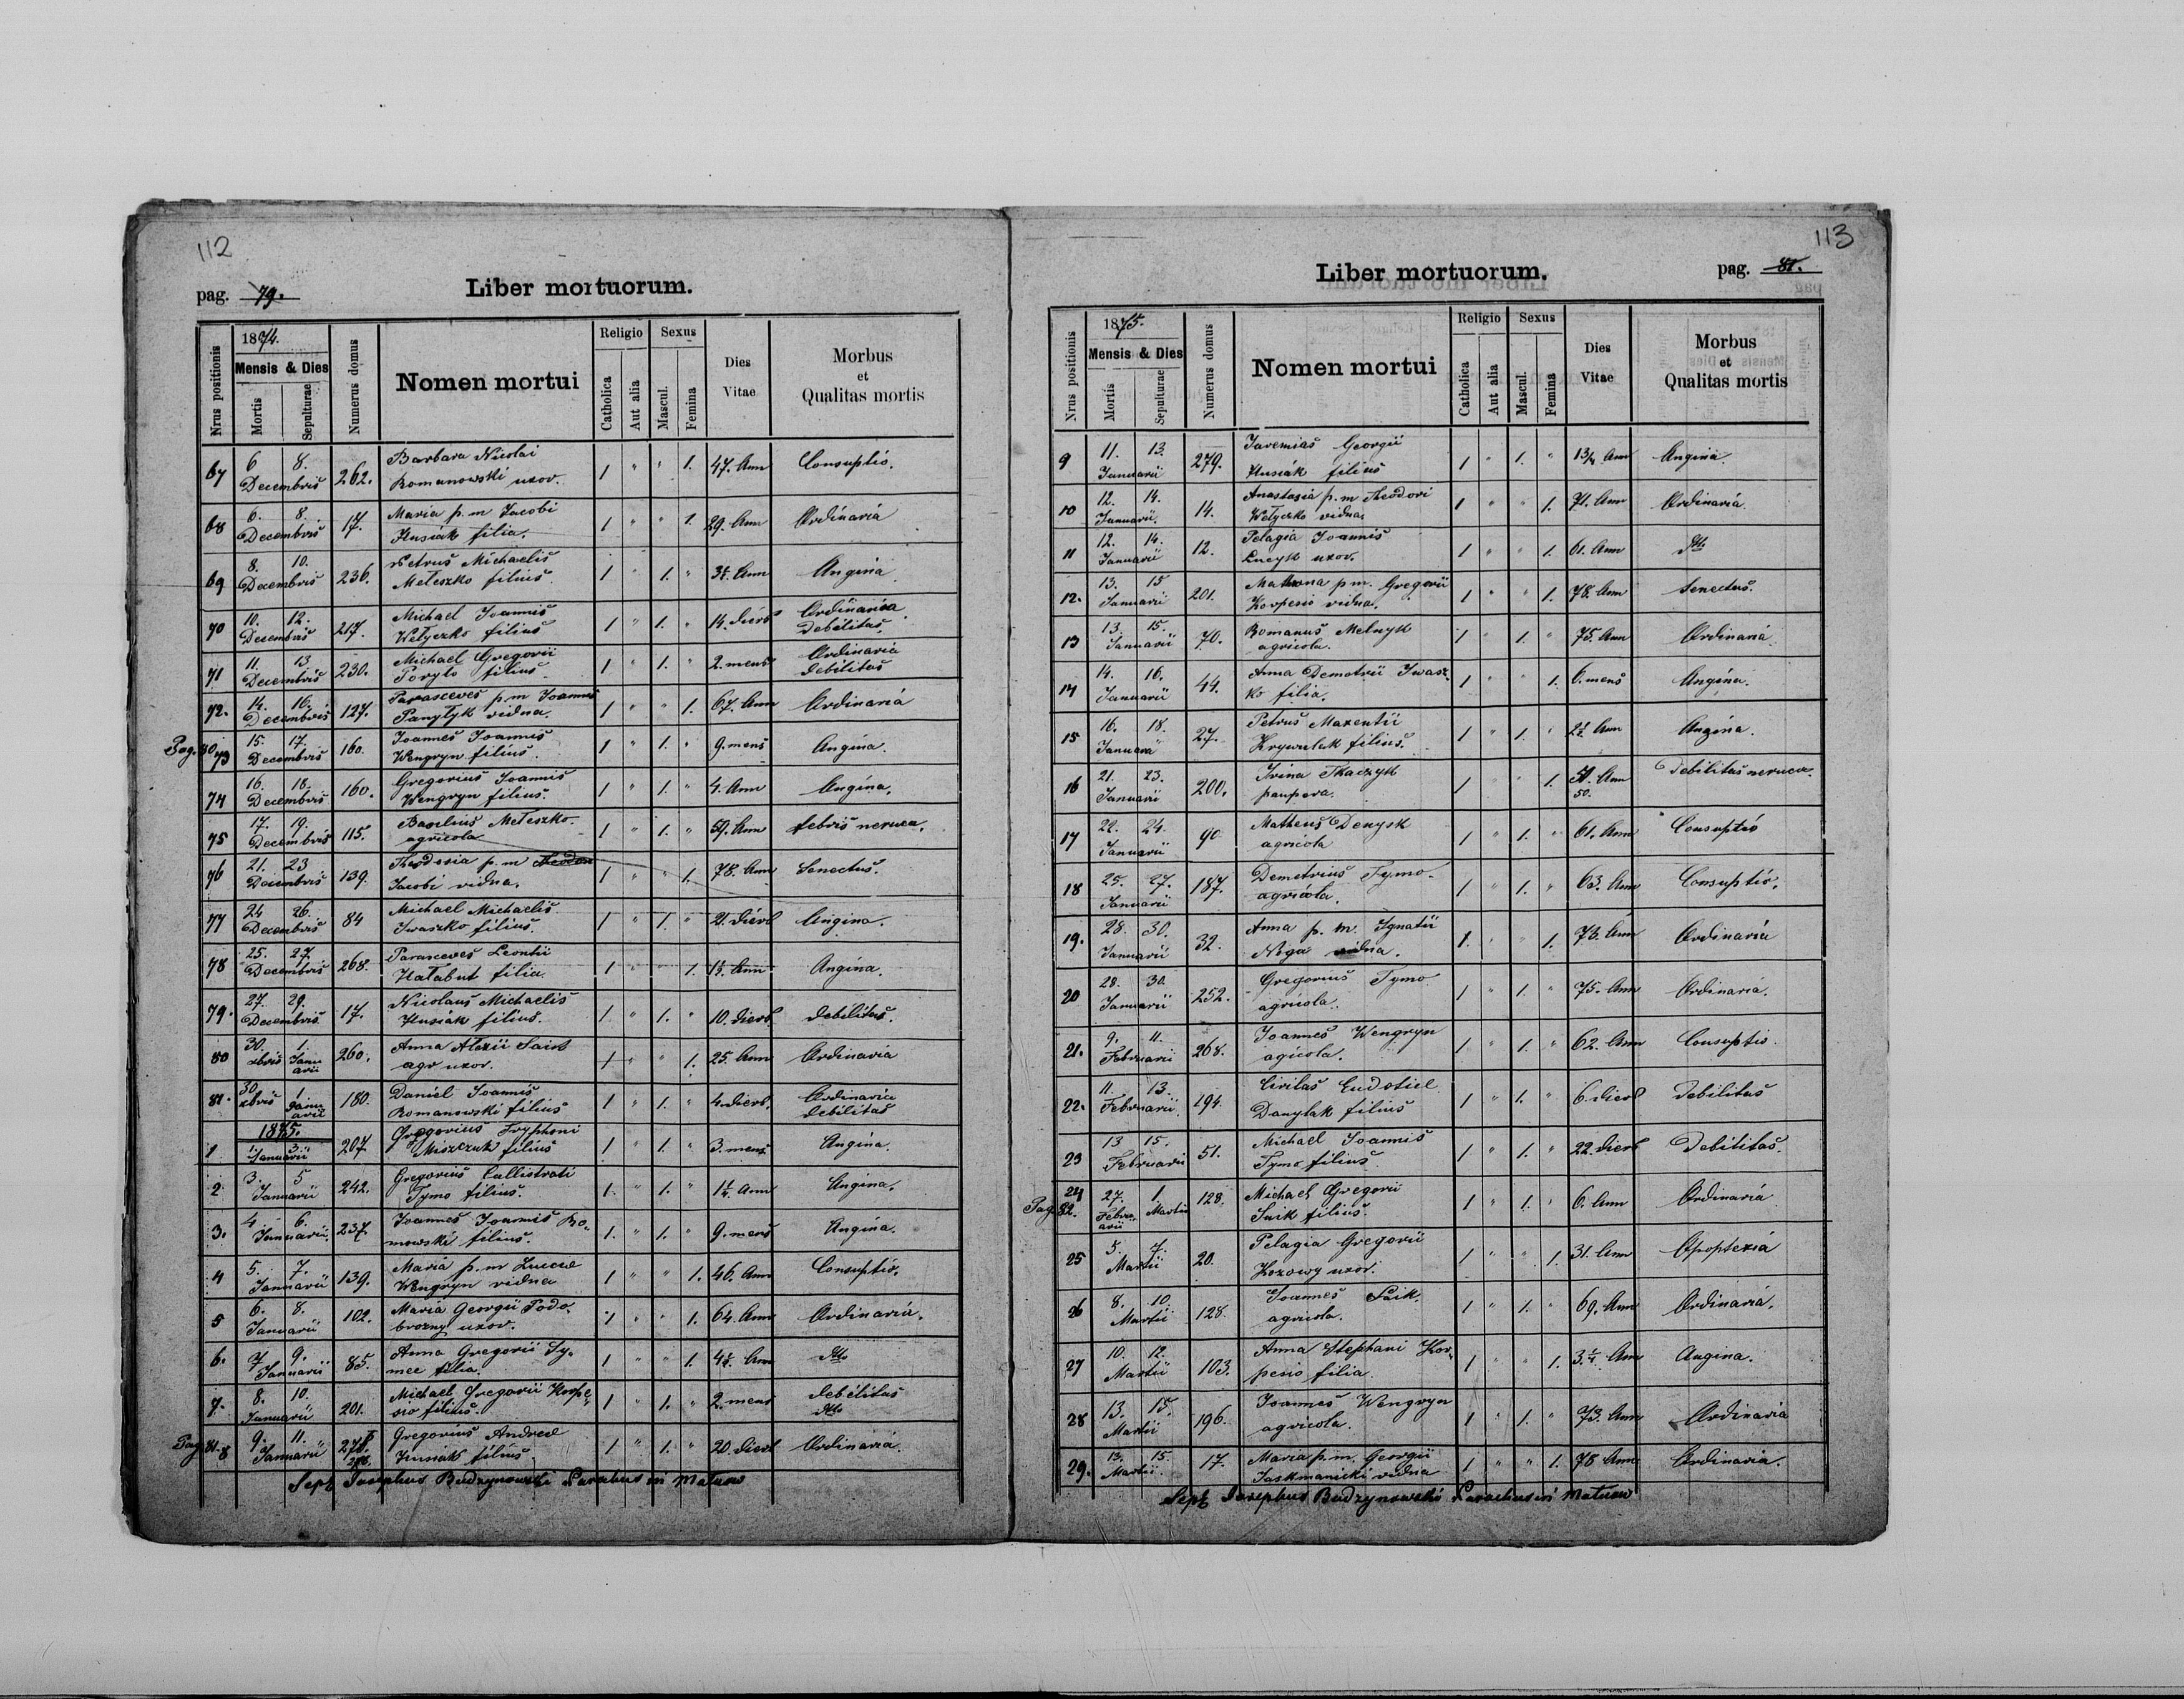 112
pag. 79.
Liber mortuorum.
Nrus positionis
1874.
Mensis & Dies
Mortis
Sepulturae
Numerus domus
Nomen mortui
Religio
Catholica
Aut alia
Sexus
Mascul.
Femina
Dies Vitae
Morbus et Qualitas mortis
67 6 8. Decembris 262. Barbara Nicolai Romanowski uxor. 1 " " 1. 47. Ann Consuptio.
68 6. 8. Decembris 17. Maria p. m Jacobi Husiak filia. 1 " " 1. 29. Ann Ordinaria
69 8. 10. Decembris 236. Petrus Michaelis Meteszko filius. 1 " 1. " Ann Angina
70 10. 12. Decembris 217. Michael Joannis Wetyczko filius 1 " 1. " 14. dierb Ordinaria Debilitas
71 11. 13 Decembris 230. Michael Gregorii Poryto filius 1 " 1. " 2. mens Ordinaria debilitas
72. 14. 16. Decembris 127. Parasceves p. m Joannis vidua. 1 " " 1. 67. Ann Ordinaria
Pag. 80 73 15. 17. Decembris 160. Joannes Joannis Wengryn filius. 1 " 1. " 9. mens Angina.
74 16. 18. Decembris 160. Gregorius Joannis Wengryn filius. 1 " 1. " 4. Ann Angina.
75 17. 19. Decembris 115. Basilius Meteszko agricola 1 " 1. " 59. Ann febris nervea.
76 21. 23 Decembris 139. Theodosia p. m Jacobi vidua. 1 " " 1. 78. Ann Senectus.
77 24 26. Decembris 84 Michael Michaelis Iwaszko filius. 1 " 1. " 21. dierb Angina.
78 25. 27. Decembris 268. Parasceves Leontii Hatabut filia. 1 " " 1. 1½. Ann Angina.
79. 27. 29. Decembris 17. Nicolaus Michaelis Husiak filius. 1 " 1. " 10. dierb. debilitas.
80 30. xbris 1. Januarii 260. Anna Alexii Saik agr uxor. 1 " " 1. 25. Ann Ordinaria
81. 30. xbris 1 Januarii 180. Daniel Joannis Romanowski filius 1 " 1. " 4. dierb. Ordinaria debilitas
1875.
1 1. 3. Januarii 207 Gregorius Tryphoni Miszczuk filius 1 " 1. " 3. mens Angina.
2 3. 5 Januarii 242. Gregorius Callistrati Tymo filius. 1. " 1. " Ann Angina.
3. 4. 6. Januarii 237 Joannes Joannis Romowski filius. 1. " 1. " 9. mens Angina.
4 5. 7. Januarii 139. Maria p. m Lucae Wengryn vidua 1 " " 1. 46. Ann Consuptio.
5 6. 8. Januarii 102. Maria Georgii Podobrozny uxor. 1 " " 1. 64. Ann Ordinaria.
6. 7 9. Januarii 85. Anna Gregorii filia. 1 " " 1. 4½. Ann dtto
7. 8. 10. Januarii 201. Michael Gregorii Korpesio filius. 1 " 1. " 2. mens debilitas dtto
Pag. 81. 8 9. 11. Januarii 278. Gregorius Andreae Husiak filius. 1 " 1. " 20. dierb Ordinaria.
Sept Josephus Budzynowski Parochus in Matuow
113
Liber mortuorum.
pag. 81.
Nrus positionis
1875.
Mensis & Dies
Mortis
Sepulturae
Numerus domus
Nomen mortui
Religio
Catholica
Aut alia
Sexus
Mascul.
Femina
Dies Vitae
Morbus et Qualitas mortis
9 11. 13. Januarii 279. Jaremias Georgii Husiak filius 1 " 1. " Ann Angina
10 12. 14. Januarii. 14. Anastasia p. m Theodori Wetyczko vidua. 1 " " 1. 71. Ann Ordinaria.
11 12. 14. Januarii 12. Pelagia Joannis Lucyk uxor. 1 " " 1. 61. Ann dtto
12. 13. 15 Januarii 201. Matrona p m. Gregorii Korpesio vidua. 1 " " 1. 78. Ann Senectus.
13 13. 15. Januarii 70. Romanus Melnyk agricola. 1 " 1. " 75. Ann Ordinaria
14 14. 16. Januarii 44. Anna Demetrii Iwaszko filia. 1 " " 1. 6. mens Angina.
15 16. 18. Januarii 27. Petrus Maxentii Krywulak filius. 1 " 1. " 2½ Ann Angina.
16 21. 23. Januarii 200. Irina Tkaczyk paupera. 1 " " 1. 51. Ann 50. Debilitas nervea.
17 22. 24. Januarii 90 Matheus Denysk agricola 1 " 1. " 61. Ann Consuptio
18 25. 27. Januarii 187. Demetrius Tymo agricola. 1 " 1. " 63. Ann Consuptio.
19. 28. 30. Januarii 32. Anna p. m. Ignatii Noga vidua. 1. " " 1. 73. Ann Ordinaria
20 28. 30. Januarii 252. Gregorius Tymo agricola. 1 " 1. " 75. Ann Ordinaria.
21. 9. 11. Februarii 268. Joannes Wengryn agicola. 1 " 1. " 62. Ann Consuptio.
22. 11. 13. Februarii 194. Cirilas Eudotiae Danylak filius 1 " 1. " 6. dierb debilitas
23 13 15. Februarii 51. Michael Joannis Tymo filius 1 " 1. " 22. dierb Debilitas.
Pag. 82. 24 27. Februarii 1. Martii 128. Michael Gregorii Saik filius. 1 " 1. " 6. Ann Ordinaria
25 5. 7. Martii 20. Pelagia Gregorii Kozowy uxor. 1 " " 1. 31. Ann Apoplexia
26 8. 10. Martii 128. Joannes Saik. agricola. 1 " 1. " 69. Ann Ordinaria.
27 10. 12. Martii 103. Anna Stephani Korpesio filia. 1 " " 1. 3.¼. Ann Angina.
28 13. 15. Martii 196. Joannes Wengryn agricola. 1 " 1. " 73. Ann Ordinaria
29. 13. 15. Martii 17. Maria p. m. Georgii Jaskmanicki vidua 1 " " 1. 78 Ann Ordinaria.
Sept Josephus Budzynowski Parochus in Matuow